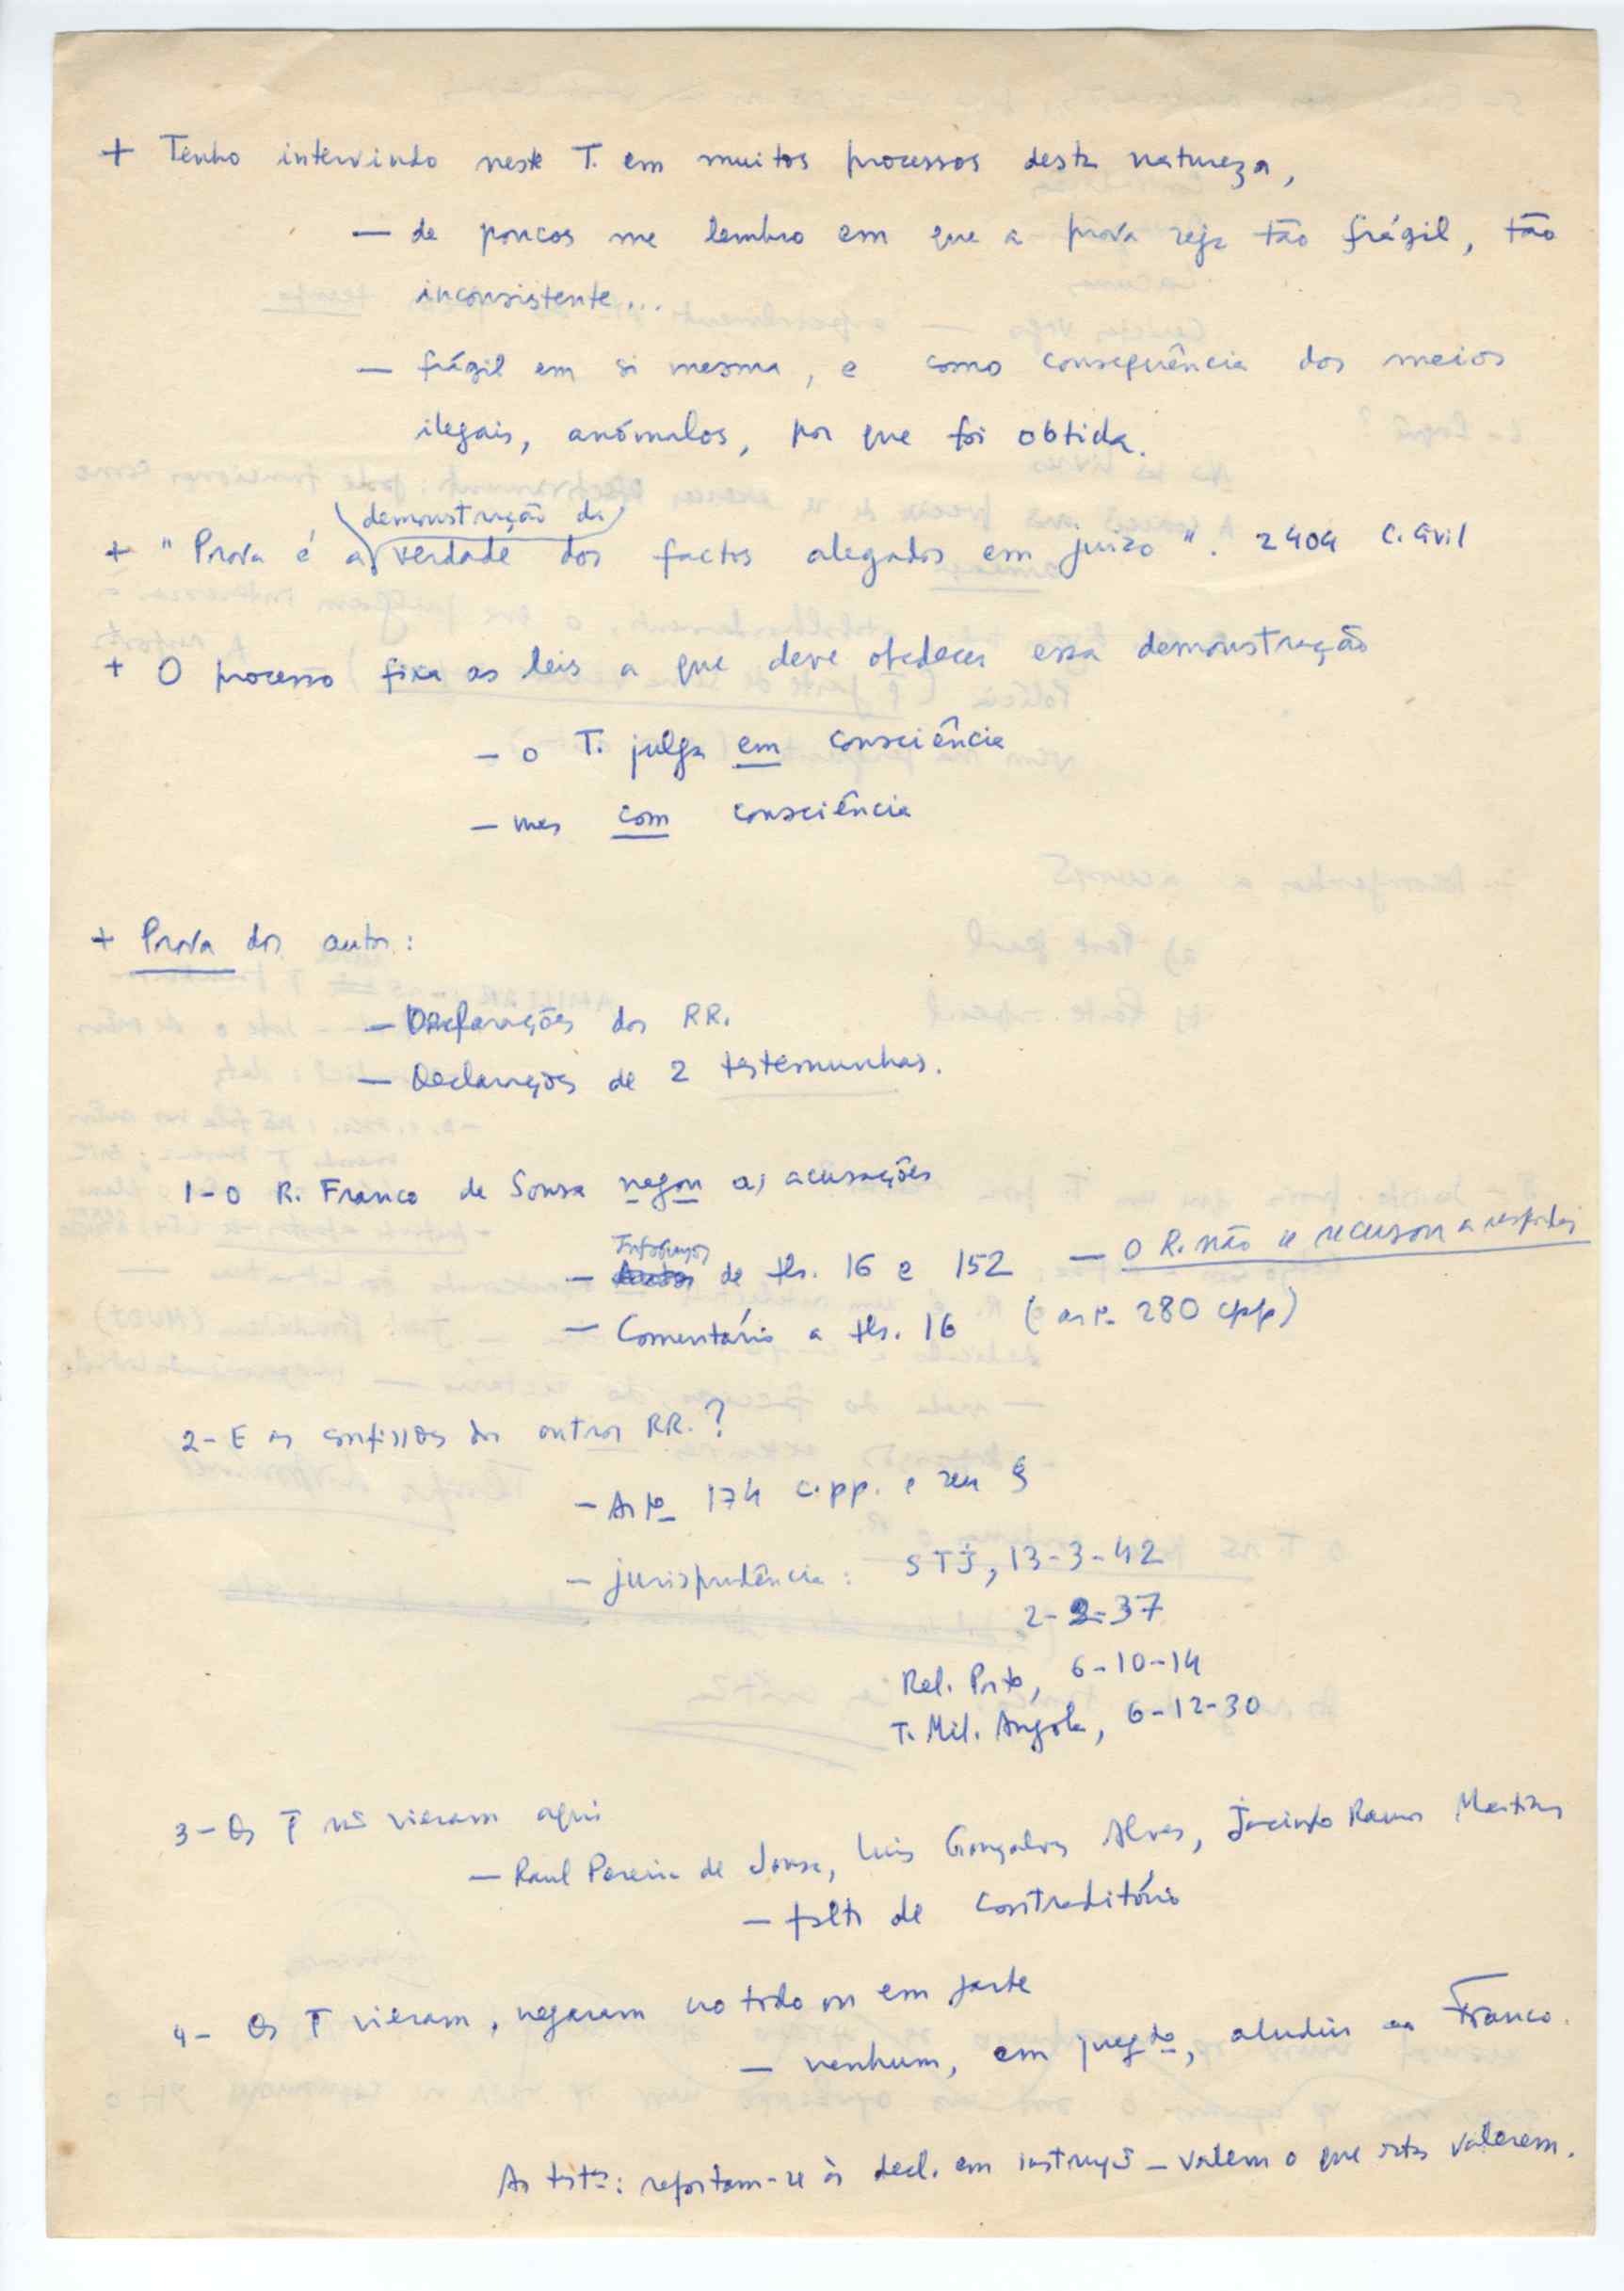 + Tenho intervindo neste T. em muitos processos desta natureza,
— de poucos me lembro em que a prova seja tão frágil, tão
inconsistente...
— frágil em si mesma, e como consequência dos meios
ilegais, anómalos, por que foi obtida.
demonstração da
+ "Prova é a verdade dos factos alegados em juizo". 2404 C. Civil
+ O processo fixa as leis a que deve obedecer essa demonstração
- o T. julga em consciência
- mas com consciência
+ Prova dos autos:
- Declarações dos RR.
- Declarações de 2 testemunhas.
1- O R. Franco de Sousa negou as acusações
- de fls. 16 e 152 — O R. não se recusou a responder
- Comentário a fls. 16 (artº 280 cpp)
2- E as confissões dos outros RR.?
- Artº 174 c.pp. e seu §
- jurisprudência: STJ, 13-3-42
2-2-37
Rel. Porto, 6-10-14
T. Mil. Angola, 6-12-30
3- Os q̄ nõ vieram aqui
- Raul Pereira de Sousa, Luis Gonçalves Alves, Jacinto Ramos Martins
- falta de contraditório
4- Os q̄ vieram, negaram no todo ou em parte
- nenhum, em julgtº, aludiu ao Franco.
As testas: reportam-se às decl. em instruçõ - valem o que estas valerem.